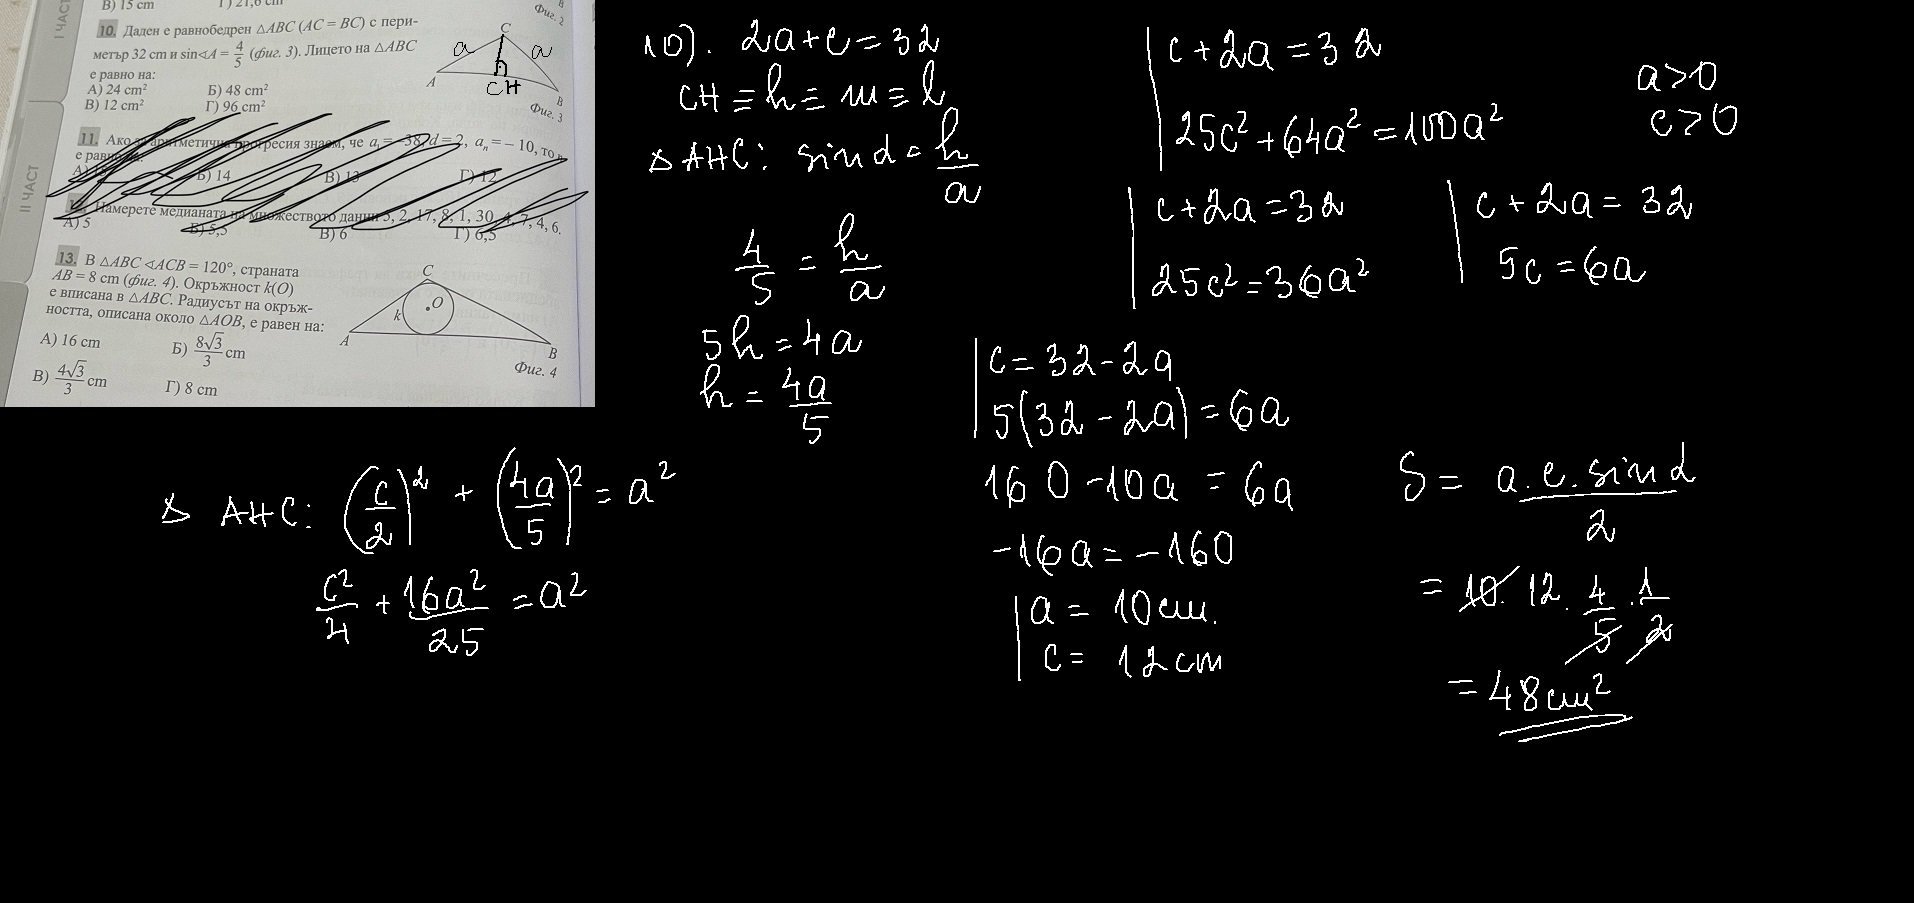 I ЧАСТ
II ЧАСТ
В) 15 cm
Г) 21,6 cm
Фиг. 2
10. Даден е равнобедрен △ABC (AC = BC) с пери-
метър 32 cm и sin∢A = 4/5 (фиг. 3). Лицето на △ABC
е равно на:
А) 24 cm²
Б) 48 cm²
В) 12 cm²
Г) 96 cm²
C
a
a
A
CH
B
Фиг. 3
11. Ако аритметична прогресия знаем, че a₁ = -38, d = 2, aₙ = - 10, то
е равно
Б) 14
В) 13
Г) 12
Намерете медианата на множеството данни 5, 2, 17, 8, 1, 30, 4, 7, 4, 6.
А) 5
Б) 5,5
В) 6
Г) 6,5
13. В △ABC ∢ACB = 120°, страната
AB = 8 cm (фиг. 4). Окръжност k(O)
е вписана в △ABC. Радиусът на окръж-
ността, описана около △AOB, е равен на:
А) 16 cm
Б) 8√3/3 cm
В) 4√3/3 cm
Г) 8 cm
C
O
k
A
B
Фиг. 4
10). 2a+c=32
CH ≡ h ≡ m ≡ l
△ AHC: sin α = h/a
4/5 = h/a
5h = 4a
h = 4a/5
△ AHC: (c/2)² + (4a/5)² = a²
c²/4 + 16a²/25 = a²
c + 2a = 32
25c² + 64a² = 100a²
a > 0
c > 0
c + 2a = 32
25c² = 36a²
c + 2a = 32
5c = 6a
c = 32 - 2a
5(32 - 2a) = 6a
160 - 10a = 6a
-16a = -160
a = 10cm.
c = 12cm
S = a.c.sin α/2
= 10. 12. 4/5 . 1/2
= 48cm²